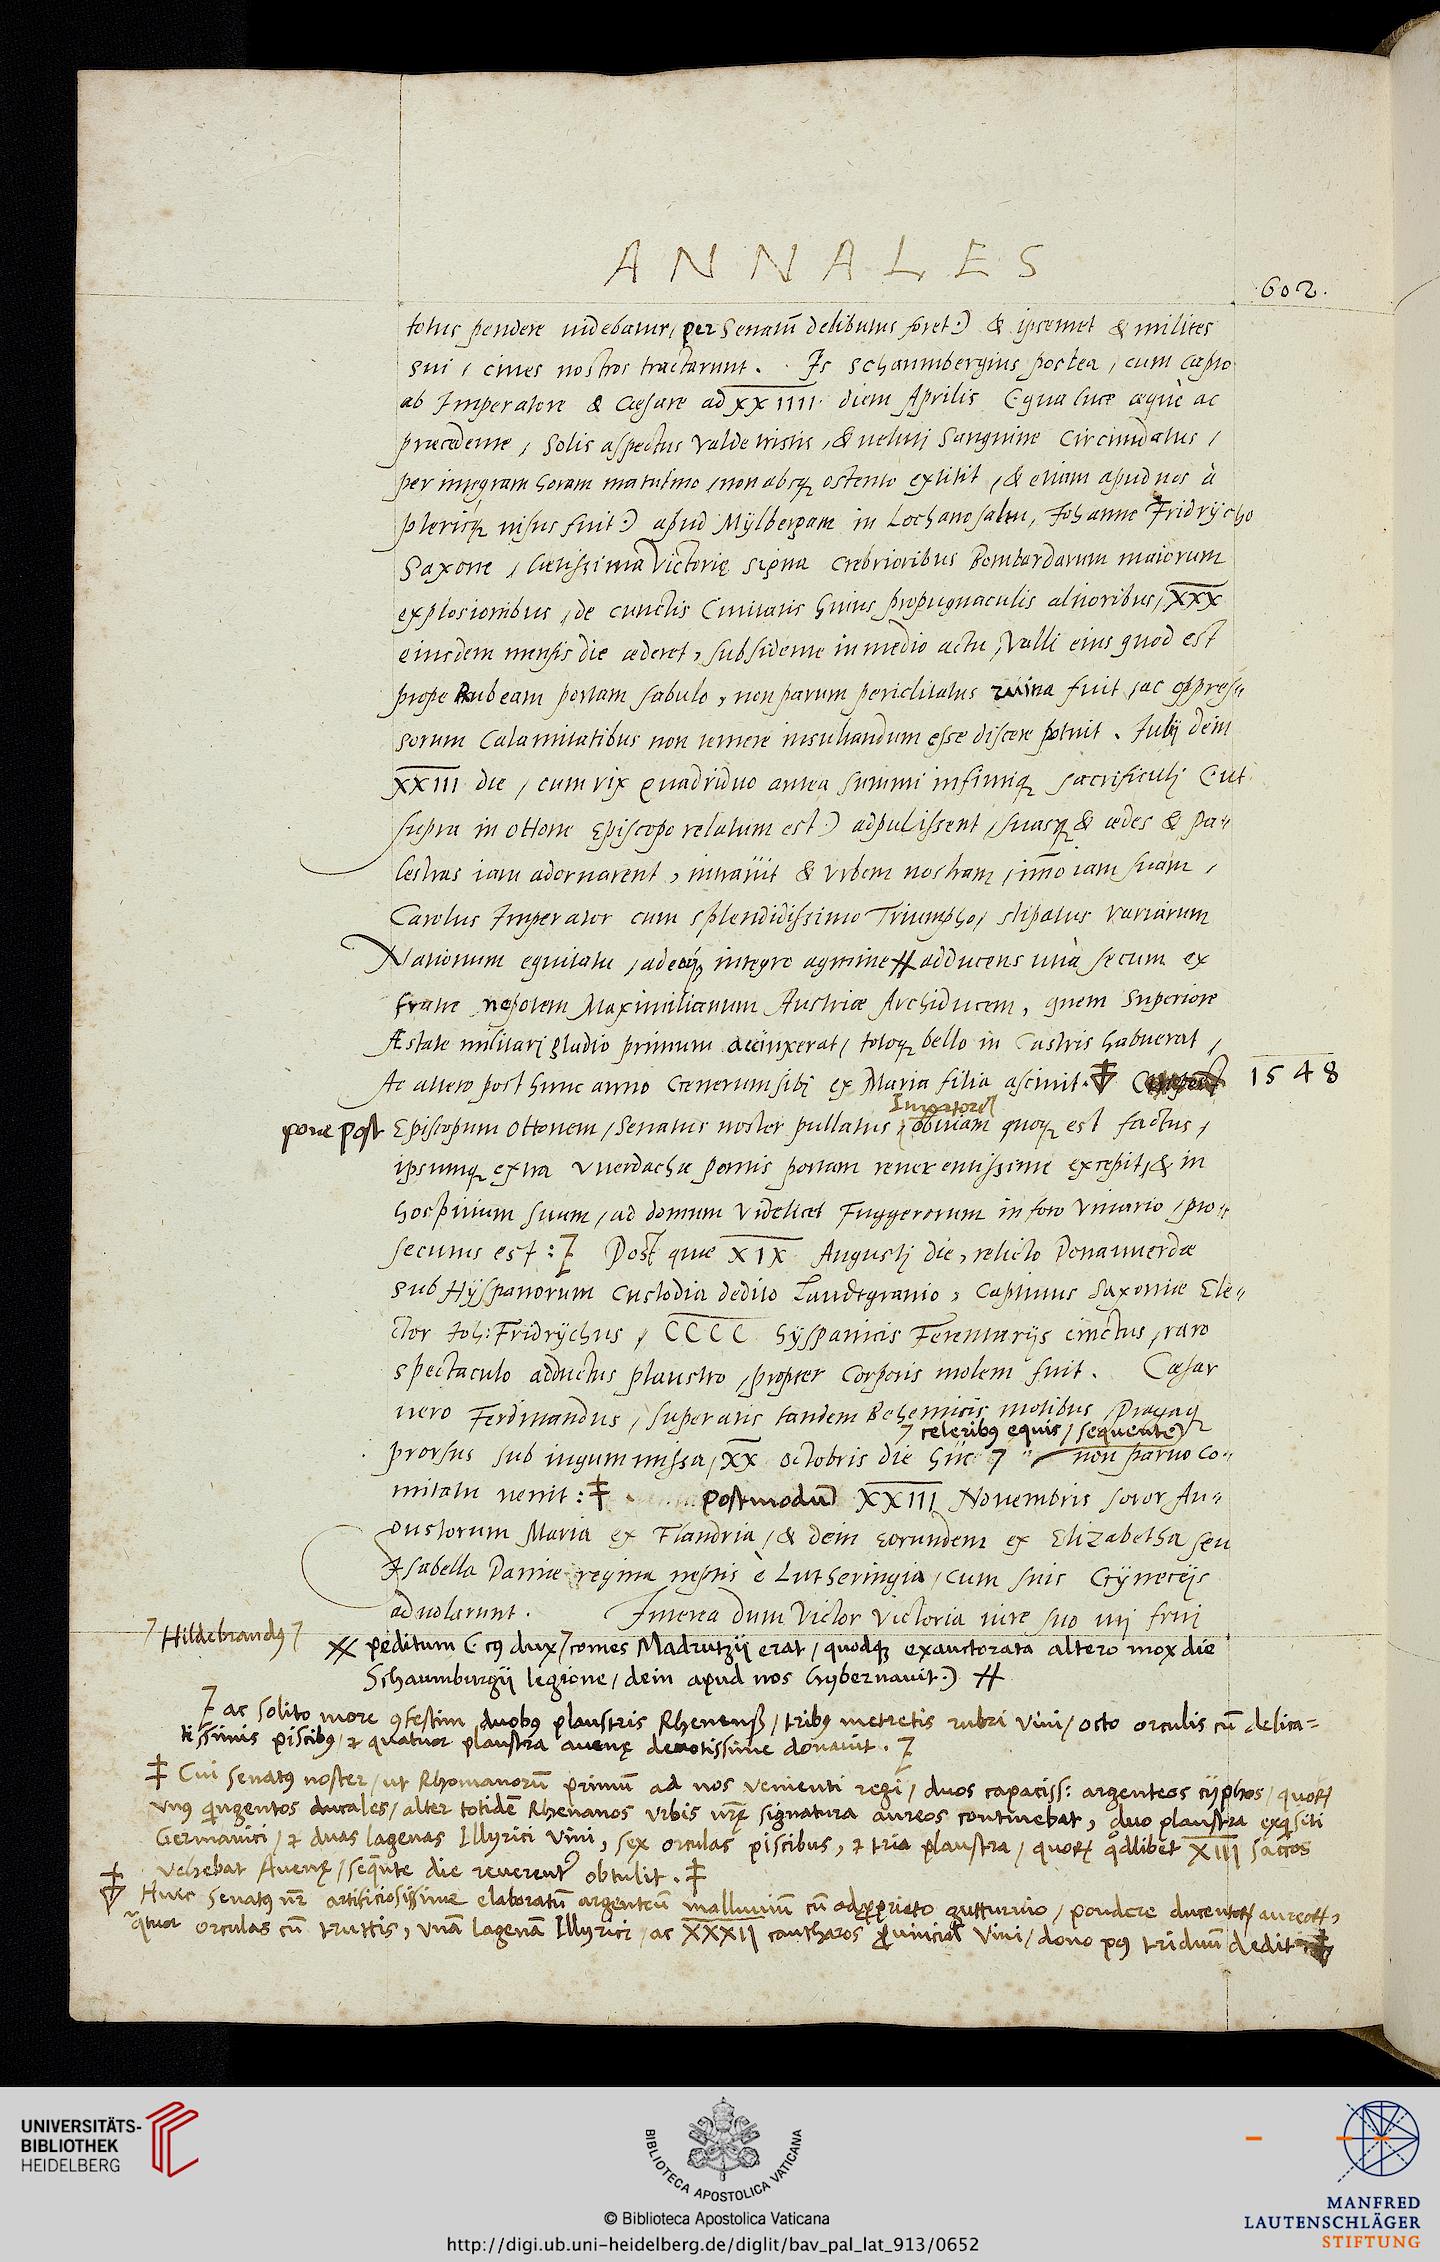 ANNALES
602.
totus pendere uidebatur, per Senatũ delibutus foret.) & ipsemet & milites
sui, ciues nostros tractarunt. Is Schaumbergius postea, cum capto
ab Imperatore & Cæsare ad XXIIII diem Aprilis (qua luce æquè ac
præcedente, Solis aspectus valde tristis, & ueluti Sanguine circũdatus,
per integram horam matutino, non absq; ostento extitit, & etiam apud nos à
plerisq; uisus fuit.) apud Mÿlbergam in Lochano saltu, Johanne Fridrÿcho
Saxone, lætissima Victorię signa crebrioribus Bombardarum maiorum
explosionibus, de cunctis Ciuitatis huius propugnaculis altioribus, XXX
eiusdem mensis die æderet, subsidente in medio actu, Valli eius quod est
prope Rubeam portam sabulo, non parum periclitatus ruina fuit, ac oppres„
sorum Calamitatibus non temere insultandum esse discere potuit. Julij dein
XXIII die, cum vix quadriduo antea summi infimiq; sacrificulj (ut
supra in Ottone Episcopo relatum est.) adpulissent, suasq; & ædes & pa„
lestras iam adornarent, intrauit & Vrbem nostram, im̃o iam suam,
Carolus Imperator cum splendidissimo Triumpho, stipatus variarum
Nationum equitatu, adeoq; integro agmine # adducens unà secum ex
fratre nepotem Maximilianum Austriæ Archiducem, quem Superiore
Æstate militarj gladio primum accinxerat, totoq; bello in Castris habuerat,
Ac altero post hunc anno Generum sibj ex Maria filia asciuit.
1548
pone post
Episcopum Ottonem, Senatus noster pullatus, obuiam quoq; est factus,
Imp̃atorej
ipsumq; extra Vuerdachæ pontis portam reuerentissime excepit, & in
hospitium suum, ad domum Videlicet Fuggerorum in foro Vinario, pro„
secutus est: Post quæ XIX Augustj die, relicto Donauuerdæ
sub Hÿspanorum Custodia dedito Landtgrauio, Captiuus Saxoniæ Ele„
ctor Joh: Fridrÿchus, CCCC hÿspanicis Ferentarijs cinctus, raro
spectaculo adductus plaustro, propter Corporis molem fuit. Cæsar
uero Ferdinandus, superatis tandem Bohemicis motibus, Pragaq;
celeribꝰ equis, sequente)
prorsus sub iugum missa, XX Octobris die huc non paruo Co„
mitatu uenit: ‡ postmodũ XXIII Nouembris soror Au„
gustorum Maria ex Flandria, & dein eorundem ex Elizabetha seu
Isabella Daniæ regina neptis è Lutheringia, cum suis Gÿnecijs
aduolarunt. Interea dum Victor Victoria iure suo utj fruj
Hildebrandꝰ
peditum (cꝰ dux comes Madrutzij erat, quodq; exauctorata altero mox die
Schaumburgij legione, dein apud nos hybernauit.) #
ac solito more ꝯfestim duobꝰ plaustris Rhenensj, tribꝰ metretis rubri Vini, octo orculis cũ delica=
tissimis piscibꝰ, & quatuor plaustra auenę deuotissime donauit.
‡ Cui senatꝰ noster, ut Rhomanorũ primũ ad nos venienti regi, duos capaciss: argenteos cÿphos, quorꝝ
vnꝰ quingentos ducales, alter totidẽ Rhenanos vrbis nr̃ę signatura aureos continebat, duo plaustra exq̃siti
Germanici, & duas lagenas Illyrici vini, sex orculas piscibus, & tria plaustra, quorꝝ qdlibet XIII saccos
vehebat Auenę, seqũente die reuerent̃ obtulit. ‡
Huic Senatꝰ nr̃ artificiosissime elaboratũ argenteũ malluuiũ cũ adp̃prieto gutturnio, pondere ducentorꝝ aureorꝝ,
q̃tuor orculas cũ truttis, vnã lagenã Illyrici, ac XXXII cantharos ꝓuincial Vini, dono pꝰ triduũ dedit
UNIVERSITÄTS-
BIBLIOTHEK
HEIDELBERG
BIBLIOTECA APOSTOLICA VATICANA
© Biblioteca Apostolica Vaticana
http://digi.ub.uni-heidelberg.de/diglit/bav_pal_lat_913/0652
MANFRED
LAUTENSCHLÄGER
STIFTUNG